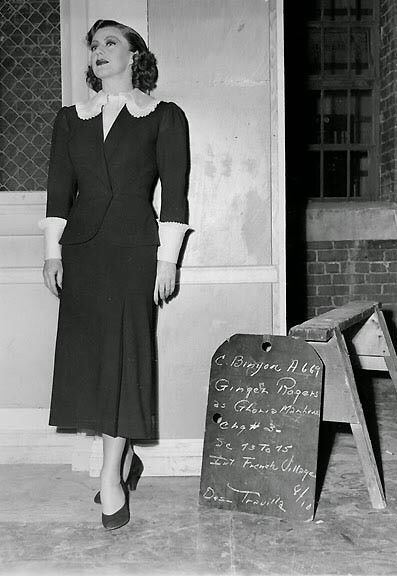 C. Binyon A669
Ginger Rogers
as Gloria Marlowe
Chg # 3-
Sc 73 To 75
Int French Village
8/10
Des- Travilla